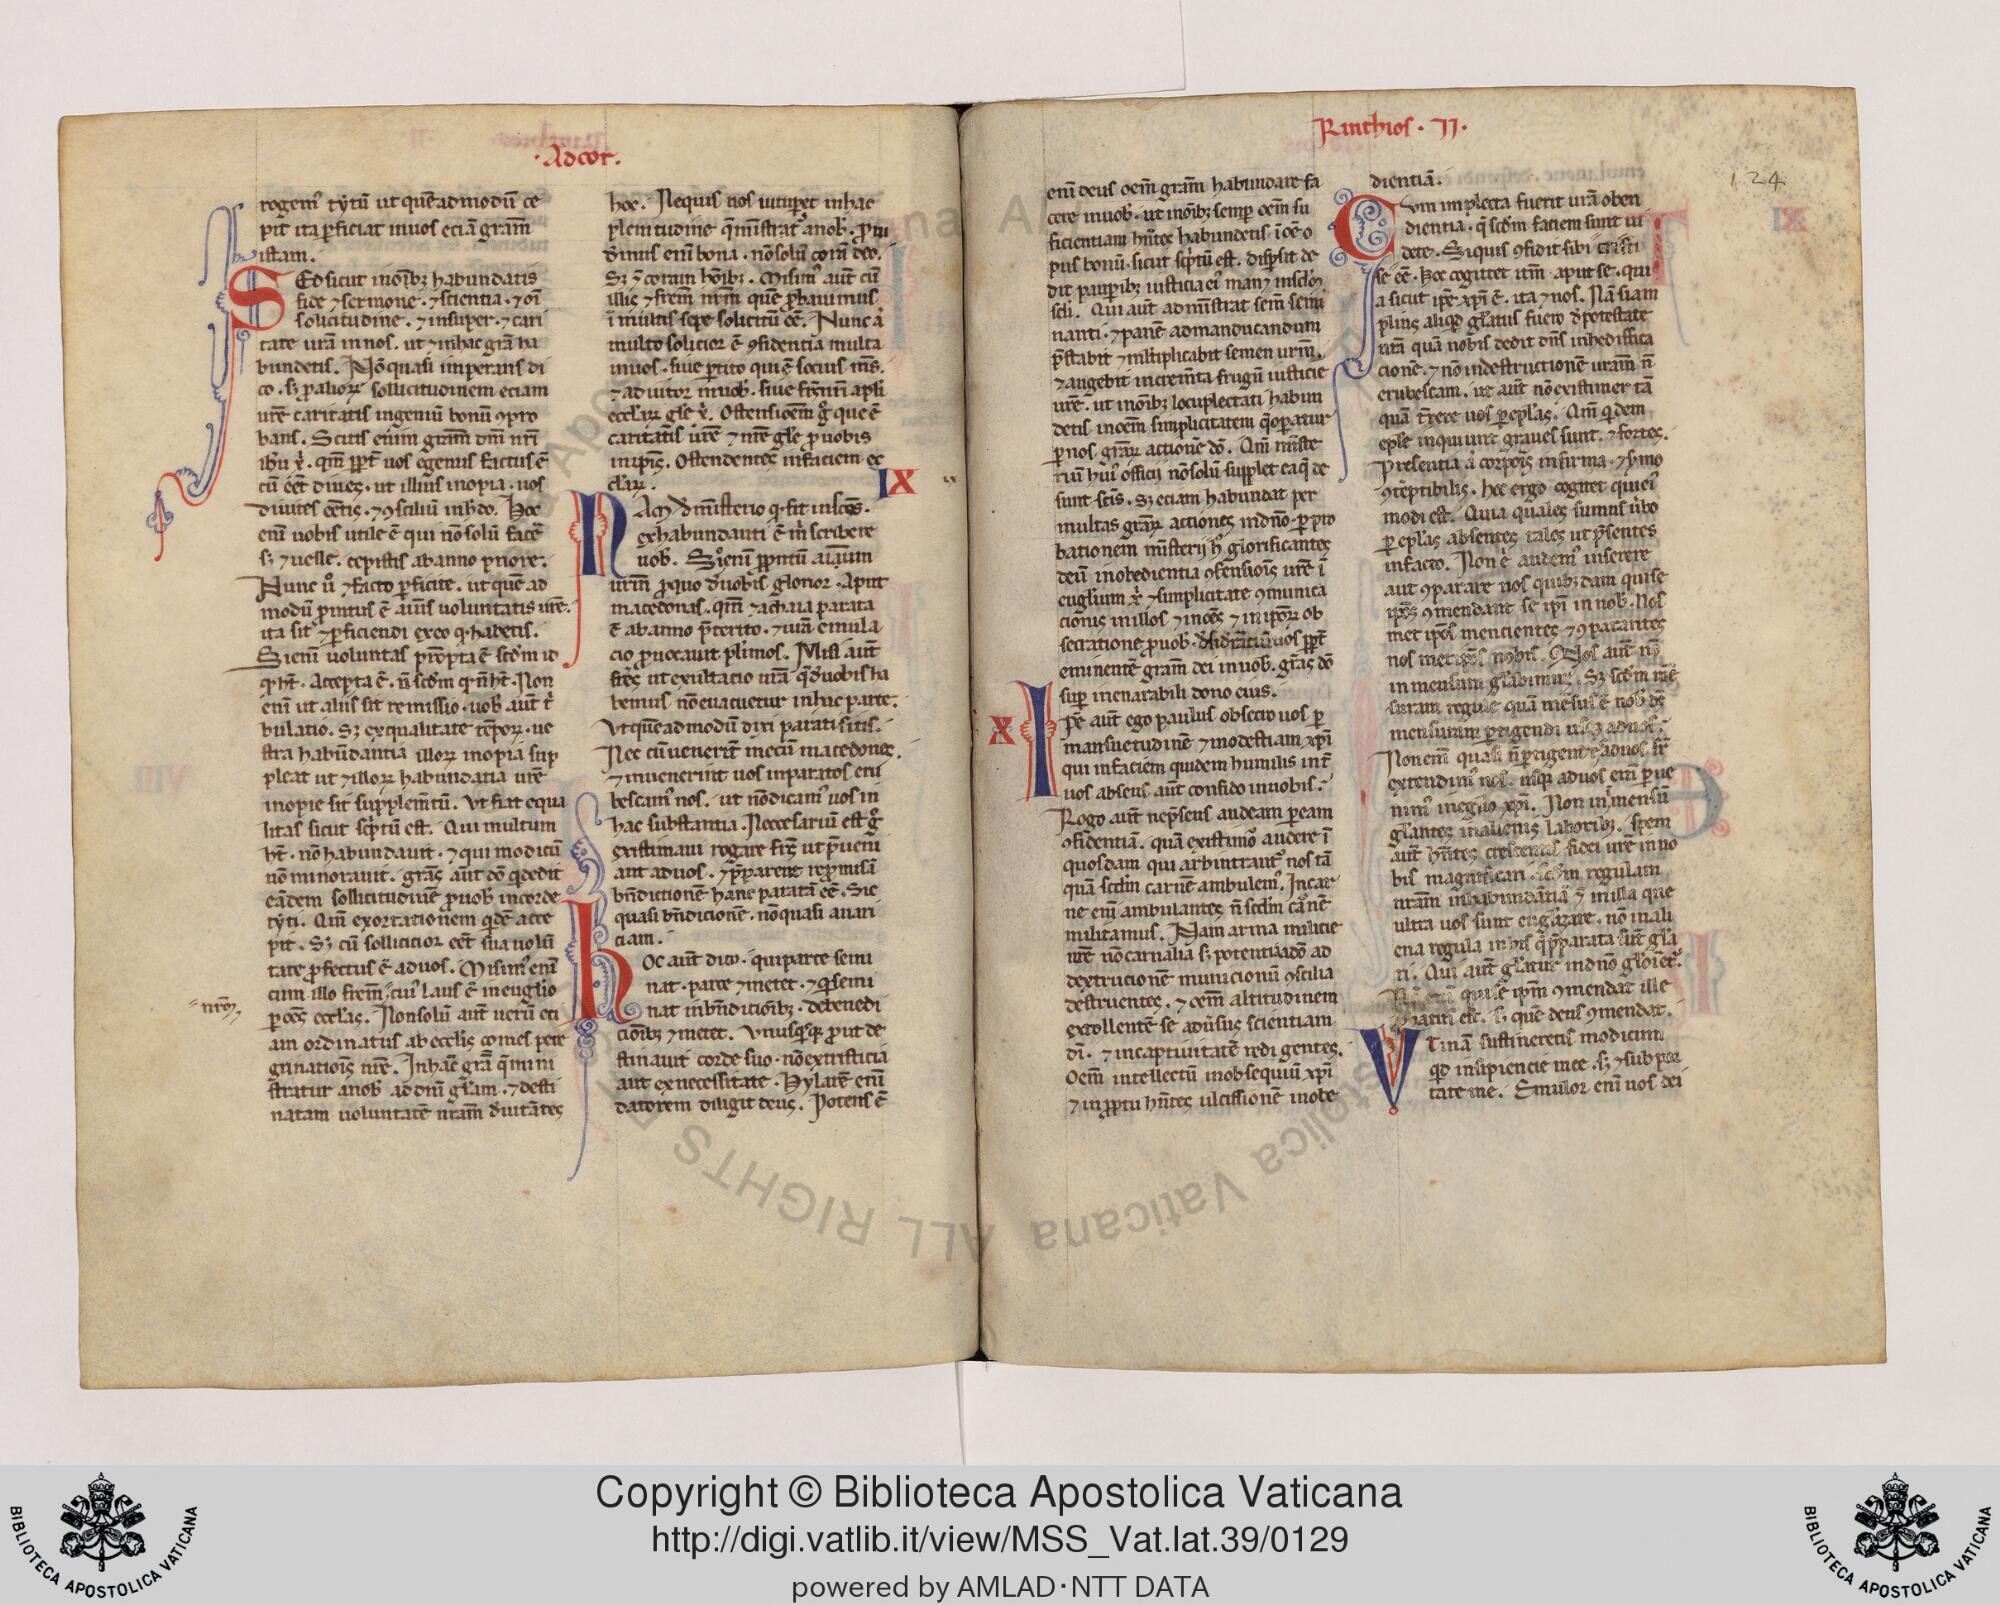 ·Ad cor.
rogem᷒ tytū ut quēadmodū ce
pit ita ꝑficiat in uos eciā gram̄
istam.
Sed sicut in oīb; habundatis
fide ⁊ sermone · ⁊ scientia · ⁊ oī
solicitudine · ⁊ insuper · ⁊ cari
tate urā in nos. ut ⁊ in hac grā ha
bundetis. Nō quasi imperans di
co · s; ꝑ alioꝝ sollicitudinem eciam
urē caritatis ingeniū bonū ꝯpro
bans. Scitis enim gram̄ dnī nrī
ihū x̄. qm̄ ꝓpt̄ uos egenus factus ē
cū eēt diues · ut illius inopia · uos
diuites eētis · ⁊ ꝯsiliū in h° do. Hoc
enī uobis utile ē qui nō solū facē
s; ⁊ uelle. cepistis ab anno priore.
Nunc ū ⁊ facto ꝑficite. ut quē ad
modū promtus ē aīus uoluntatis urē.
ita sit ⁊ ꝑficiendi exeo q· habetis.
Si enī uoluntas prōpta ē scdm id
q· ht̄. Accepta ē. n̄ scdm q· n̄ ht̄. Non
enī ut aliis sit remissio · uob᷒ aut̄ t̄
bulatio. S; ex qualitate tēpoꝝ · ue
stra habūdantia illoꝝ inopiā sup
pleat ut ⁊ illoꝝ habundatia urē
inopie sit supplem̄tū. Ut fiat equa
litas sicut sc̄ptū est. Qui multum
ht̄ · nō habundauit · ⁊ qui modicū
nō minorauit. grās aut̄ dō q dedit
eādem sollicitudinē pro uob᷒ in corde
tyti. Qm̄ exortationem qdē acce
pit. S; cū sollicitior eēt sua uolū
tate profectus ē ad uos. Misim᷒ enī
cum illo frem̄ · cui᷒ laus ē in euglio
ꝑ oēs eccl̄as. Non solū aut̄ uerū eti
am ordinatus ab ecclis comes pere
grinatiōis nrē. In hāc grā q mini
stratur a nob᷒ ad dnī glam. ⁊ desti
natam uoluntatē nram̄ deuitātes
nr̄m
hoc. Nequis nos uitupet in hac
plenitudine q ministrat᷒ a nob᷒. Proui
demus enī bona · nō solū coram deo.
S; ⁊ coram hōib;. Misim᷒ aut̄ cū
illis ⁊ frem̄ nrm̄ quē probauimus
ī multis sepe solicitū eē. Nunc ā
multo solicior ē ꝯfidentia multa
in uos · siue ꝑ tito qui ē socius ms̄.
⁊ adiutor in uob᷒. siue frs̄ nrī apli
eccl̄aꝝ gle x̄. Ostensioēm g° que ē
caritatis urē ⁊ nrē gle pro uobis
in ipīs. Ostendentes in faciem ec
cl̄aꝝ.
IX
Nam d̄ mīsterio q· fit in scōs.
ex habundanti ē m̄ scribere
uob᷒. Scio enī promtū animum
urm̄ pro quo de uobis glorior · aput
macedonas. qm̄ ⁊ achaia parata
ē ab anno p̄terito · ⁊ urā emula
cio prouocauit plimos. Misi aut̄
frēs ut exultacio urā q de uobis ha
bemus nō euacuetur in hac parte.
Ut quēadmodū dixi parati sitis.
Nec cū uenerīt mecū macedones.
⁊ inuenerint uos inparatos eru
bescam᷒ nos. ut nō dicam᷒ uos in
hac substantia. Necessariū est g°
existimaui rogare frs̄ ut p̄ueni
ant ad uos. ⁊ p̄parent repromisā
bn̄dictionē hanc paratā eē. Sic
quasi bn̄dicionē · nō quasi auari
ciam.
Hoc aut̄ dico · qui parce semi
nat · parce ⁊ metet · ⁊ q semi
nat in bn̄dicionib; · de benedi
cionib; ⁊ metet. Unusq·sq· prout de
stinauit corde suo · nō ex tristicia
aut ex necessitate. Hylarē enī
datorem diligit deus. Potens ē
Rinthios · II·
124
enī deus oem̄ gram̄ habundare fa
cere in uob᷒. ut in oīb; semp oem̄ su
ficientiam hn̄tes habundetis ī oē o
pus bonū · sicut sc̄ptū est. dispersit de
dit pauperib; iusticia ei᷒ man; in sclm
scli. Qui aut̄ administrat sem̄ semi
nanti · ⁊ panē ad manducandum
p̄stabit ⁊ multiplicabit semen urm̄.
⁊ augebit increm̄ta frugū iusticie
urē. ut in oīb; locupletati habun
detis in oēm simplicitatem q operatur
ꝑ nos graꝝ actionē dō. Qm̄ mīste
riū hui᷒ officij nō solū supplet ea q de
sunt scīs. S; eciam habundat per
multas graꝝ actiones in dno · ꝑ pro
bationem mīsterij h᷒ glorificantes
deū in obedientia ꝯfensiōis urē ī
euglium x̄ ⁊ simplicitate ꝯmunica
cionis in illos ⁊ in oēs ⁊ in ipoꝝ ob
secratione pro uob᷒. desiderātiū uos ꝓpt̄
eminentē gram̄ dei in uob᷒. grās dō
super inenarabili dono eius.
X
Ipe aut̄ ego paulus obsecro uos ꝑ
mansuetudinē ⁊ modestiam xpī
qui in faciem quidem humilis int̄
uos absens aut̄ confido in uobis.
Rogo aut̄ ne p̄sens audeam ꝑ eam
ꝯfidentiā. quā existimor audere ī
quosdam qui arbitrant᷒ nos tā
quā scdm carnē ambulem᷒. In car
ne enī ambulantes n̄ scdm carnē
militamus. Nam arma milicie
nrē nō carnalia s; potentia dō ad
dextrucionē municionū ꝯsilia
destruentes. ⁊ oem̄ altitudinem
extollentē se aduersus scientiam
dī. ⁊ in captiuitatē redigentes.
Oem̄ intellectū in obsequiū xpī
⁊ in promptu hn̄tes ulcissionē inobe
dientiā.
Cum impleta fuerit urā oben
dientia · q scdm faciem sunt ui
dete. Siquis ꝯfidit sibi cristi
sē eē. hoc cogitet itm̄ · aput se. qui
a sicut ipē xpī ē. ita ⁊ nos. Nā si am
plius aliqd gl̄atus fuero de potestate
nrā quā nobis dedit dn̄s in hediffica
cionē. ⁊ nō in destructionē uram̄ n̄
erubescam. ut aut̄ nō existimer tā
quā t̄rere uos ꝑ eplas. Qm̄ qdem
eplē inquiunt graues sunt. ⁊ fortes.
Presentia ā corporis infirma · ⁊ sermo
ꝯteptibilis. hoc ergo cogitet qui ei᷒
modi est. Quia quales sumus uerbo
ꝑ eplas absentes tales ut p̄sentes
in facto. Non ē audem᷒ inserere
aut ꝯparare nos quib;dam qui se
ipōs ꝯmendant se ipī in uob᷒. Nos
met ipōs mencientes ⁊ ꝯparantes
nos met ipōs nobis. Nos aut̄ nō
in mensum gl̄abimur. S; scdm mē
suram regule quā mēsus ē nob᷒ ds̄
mensuram pertigendi usq; ad uos.
Non enī quasi n̄ ꝑtigentes ad uos sr̄
extendim᷒ nos. usq; ad uos enī ꝑue
nim᷒ in eglio xpī. Non in mensū
gl̄antes in alienis laborib;. spem
aut̄ hn̄tes crescentis fidei urē in uo
bis magnificari. scdm regulam
nram̄ in habundātia ⁊ in illa que
ultra uos sunt euglizare. nō in ali
ena regula in his q p̄parata sūt gla
ri. Qui aut̄ glatur in dno gloiet᷒.
Nō enī qui sē ipm̄ ꝯmendat ille
probatus est. s; quē deus ꝯmendat.
Utinā sustineretis modicum
qd insipiencie mee. s; ⁊ subpor
tate me. Emulor enī uos dei
Copyright © Biblioteca Apostolica Vaticana
http://digi.vatlib.it/view/MSS_Vat.lat.39/0129
powered by AMLAD·NTT DATA
BIBLIOTECA APOSTOLICA VATICANA
BIBLIOTECA APOSTOLICA VATICANA